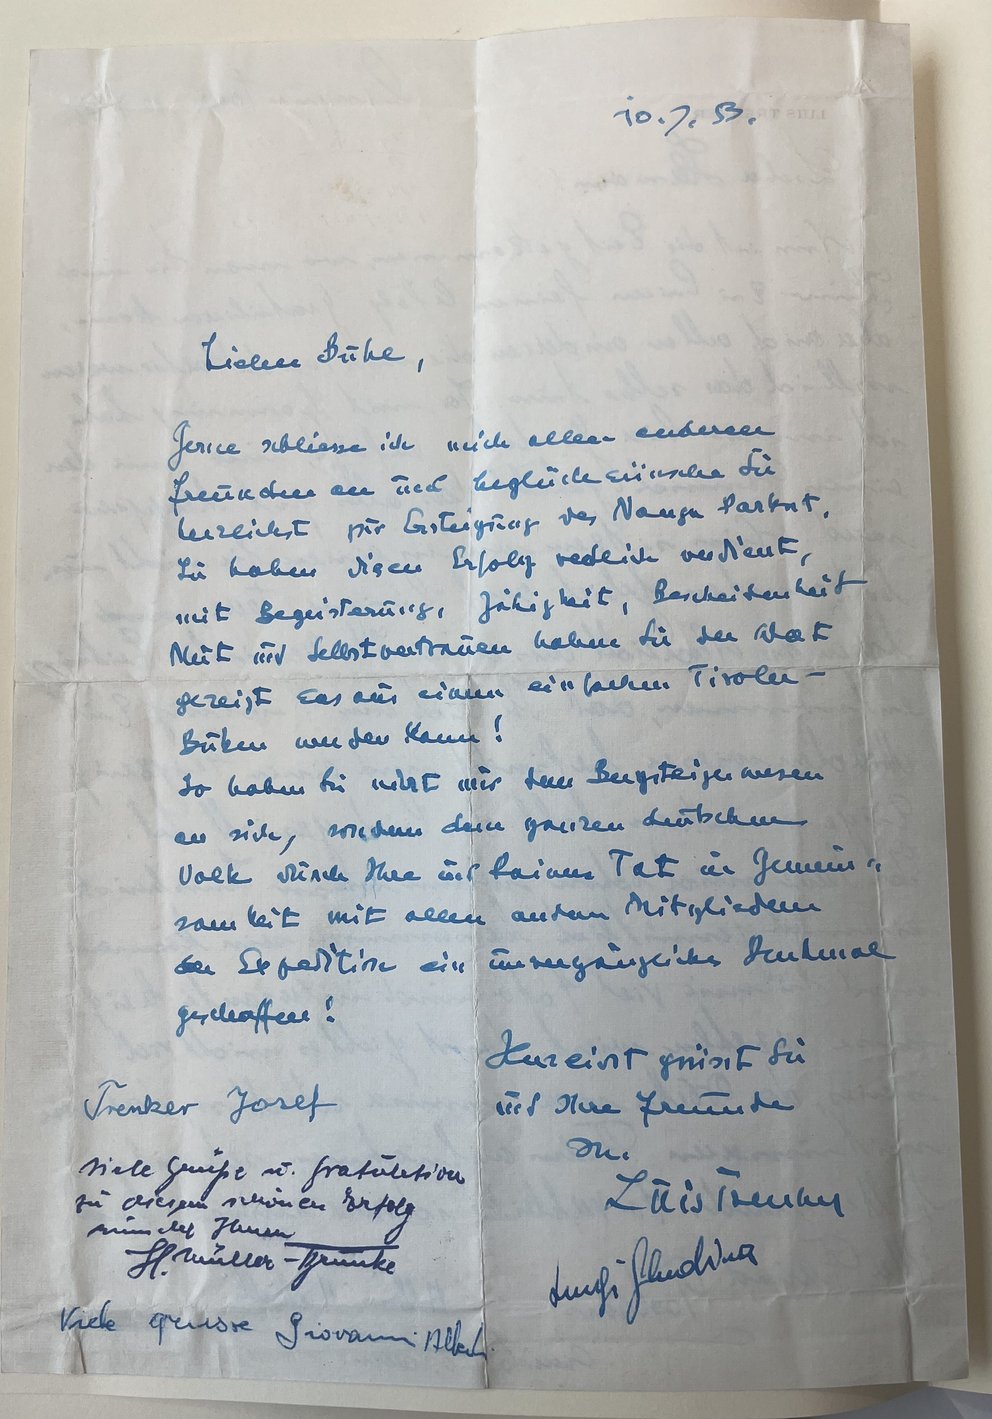 10.7.53.
Lieber Buhl,
Gerne schliesse ich mich allen anderen
Freunden an und beglückwünsche Sie
herzlichst zur Ersteigung des Nanga Parbat.
Sie haben diesen Erfolg redlich verdient,
mit Begeisterung, Zähigkeit, Bescheidenheit
Mut und Selbstvertrauen haben Sie der Welt
gezeigt was aus einem einfachen Tiroler-
Buben werden kann!
So haben Sie nicht nur dem Bergsteigerwesen
an sich, sondern dem ganzen deutschen
Volk durch Ihre und Tat in Gemein-
samkeit mit allen andern Mitgliedern
der Expedition ein unvergängliches Denkmal
geschaffen!
Herzlichst grüsst Sie
und Ihre Freunde
Ihr
Luis Trenker
Trenker Josef
Viele Grüße u. Gratulation
zu diesem schönen Erfolg
wünscht Ihnen
H. Müller-Brunke
Luigi Ghedina
Viele grüsse Giovanni
LUIS